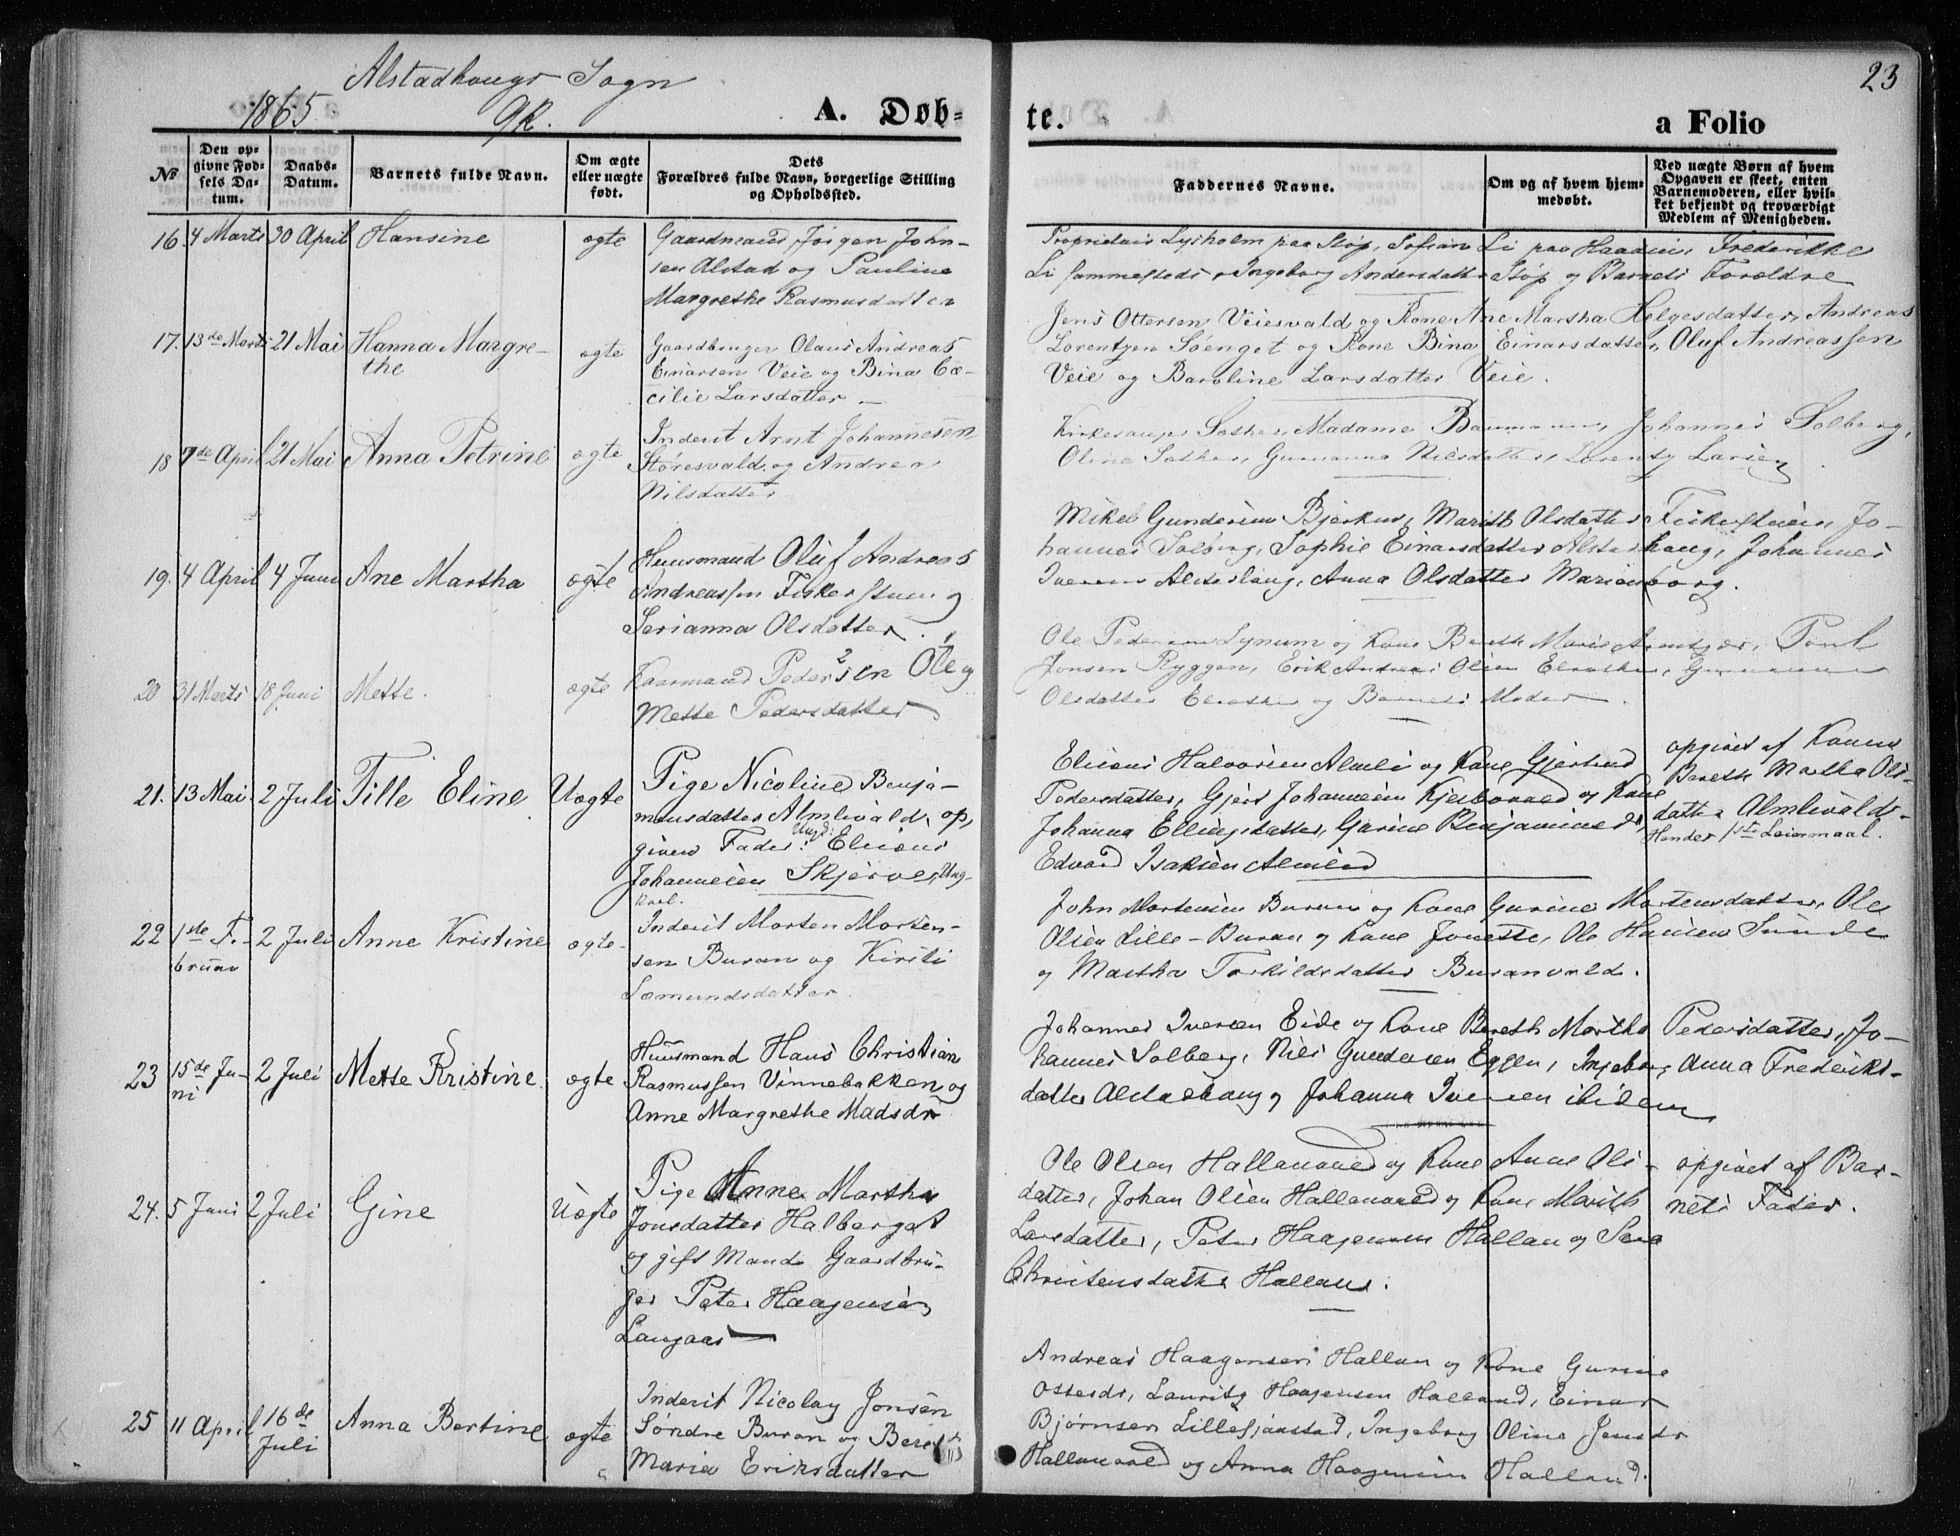 Alstadhougs Sogn
23
1865
A. Døb-
te.
a Folio
Nº
Den op-
givne Fød-
sels Da-
tum.
Daabs-
Datum.
Barnets fulde Navn.
Om ægte
eller uægte
født.
Dets
Forældres fulde Navn, borgerlige Stilling
og Opholdssted.
Faddernes Navne.
Om og af hvem hjem-
medøbt.
Ved uægte Børn af hvem
Opgaven er skeet, enten
Barnemoderen, eller hvil-
ket bekjendt og troværdigt
Medlem af Menigheden.
16. 4 Marts 30 April Hansine ægte
Gaardmand Jørgen John-
sen Alstad og Pauline
Margrethe Rasmusdatter
Proprietair Lysholm paa Støp, Li paa Frederikke
Li sammesteds, Ingeborg Andersdatter Støp og Barnets Forældre
17. 13de Marts 21 Mai Hanna Margre-
the
ægte
Gaardbruger Olaus Andreas
Einarsen Veie og Bina Cæ-
cilie Larsdatter
Jens Ottersen Veiesvald og Kone Ane Martha Helgesdatter, Andreas
Lorentzen Søenget og Kone Bina Einarsdatter, Oluf Andreassen
Veie og Baroline Larsdatter Veie.
18 7de April 21 Mai Anna Petrine ægte
Inderst Arnt Johannesen
Støresvald og Andrea
Nilsdatter
Kirkesanger Madame Johannes Solberg,
Oline Gurianna Nilsdatter, Lorentz Larsen
19. 4 April 4 Juni Ane Martha ægte
Huusmand Oluf Andreas
Andreassen Fiskerstuen og
Serianna Olsdatter.
Mikel Gundersen Marith Olsdatter Fiskerstuen, Jo-
hannes Solberg, Sophie Einarsdatter Alstadhaug, Johannes
Iversen Alstadhaug, Anna Olsdatter Marienborg.
20 31 Marts 18 Juni Mette. ægte
Kaarmand Pedersen 2 Ole 1 og
Mette Pedersdatter
Ole Pedersen Lynum og Kone Bereth Marie
Jonsen Ryggen, Erik Andreas Olsen
Olsdatter og Barnets Moder.
21. 13 Mai 2 Juli Tille Eline Uægte
Pige Nicoline Benja-
minsdatter Almlivald, op,
given Fader: Ungd: Elisæus
Johannesen Skjerve, Ung-
karl.
Elisæus Halvorsen Almli og Kone Gjertrud
Pedersdatter, Gjert Johannesen og Kone
Johanna Ellingsdatter, Gurine Benjaminsdr
Edvard Isaksen Almlid
opgivet af Konen
Bereth Martha Ols-
datter Almlivald.
Hendes 1ste Leiermaal.
22 1ste Fe-
bruar
2 Juli Anne Kristine ægte
Inderst Morten Morten-
sen Buran og Kirsti
Sæmundsdatter.
John Mortensen Buran og Kone Gurine Mortensdatter, Ole
Olsen Lille-Buran og Kone Jonette, Ole Hansen Sunde
og Martha Torkildsdatter Buranvald.
23 15de Ju-
ni
2 Juli Mette Kristine. ægte
Huusmand Hans Christian
Rasmussen Vinnebakken og
Anne Margrethe Madsdr
Johannes Iversen Eide og Kone Bereth Martha Pedersdatter, Jo-
hannes Solberg, Nils Gundersen Eggen, Ingeborg Anna Frederiks-
datter Alstadhaug og Johanna Iversen ibidem
24. 5 Juni 2 Juli Gine Uægte
Pige Anne Martha
Jonsdatter Halberget
og gift Mand Gaardbru-
ger Peter Haagensen
Langaas
Ole Olsen Hallanvald og Kone Anne Ols-
datter, Johan Olsen Hallanvald og Kone Marith
Larsdatter, Peter Haagensen Hallan og Sara
Christensdatter Halland.
opgivet af Bar-
nets Fader.
25 11 April 16de
Juli
Anna Bertine ægte
Inderst Nicolay Jonsen
Søndre Buran og Bereth
Maria Eriksdatter
Andreas Haagensen Hallan og Kone Gurine
Ottersdr, Lauritz Haagensen Halland, Einar
Bjørnsen Ingeborg Oline Jensdr
Hallanvald og Anna Haagensen Halland.